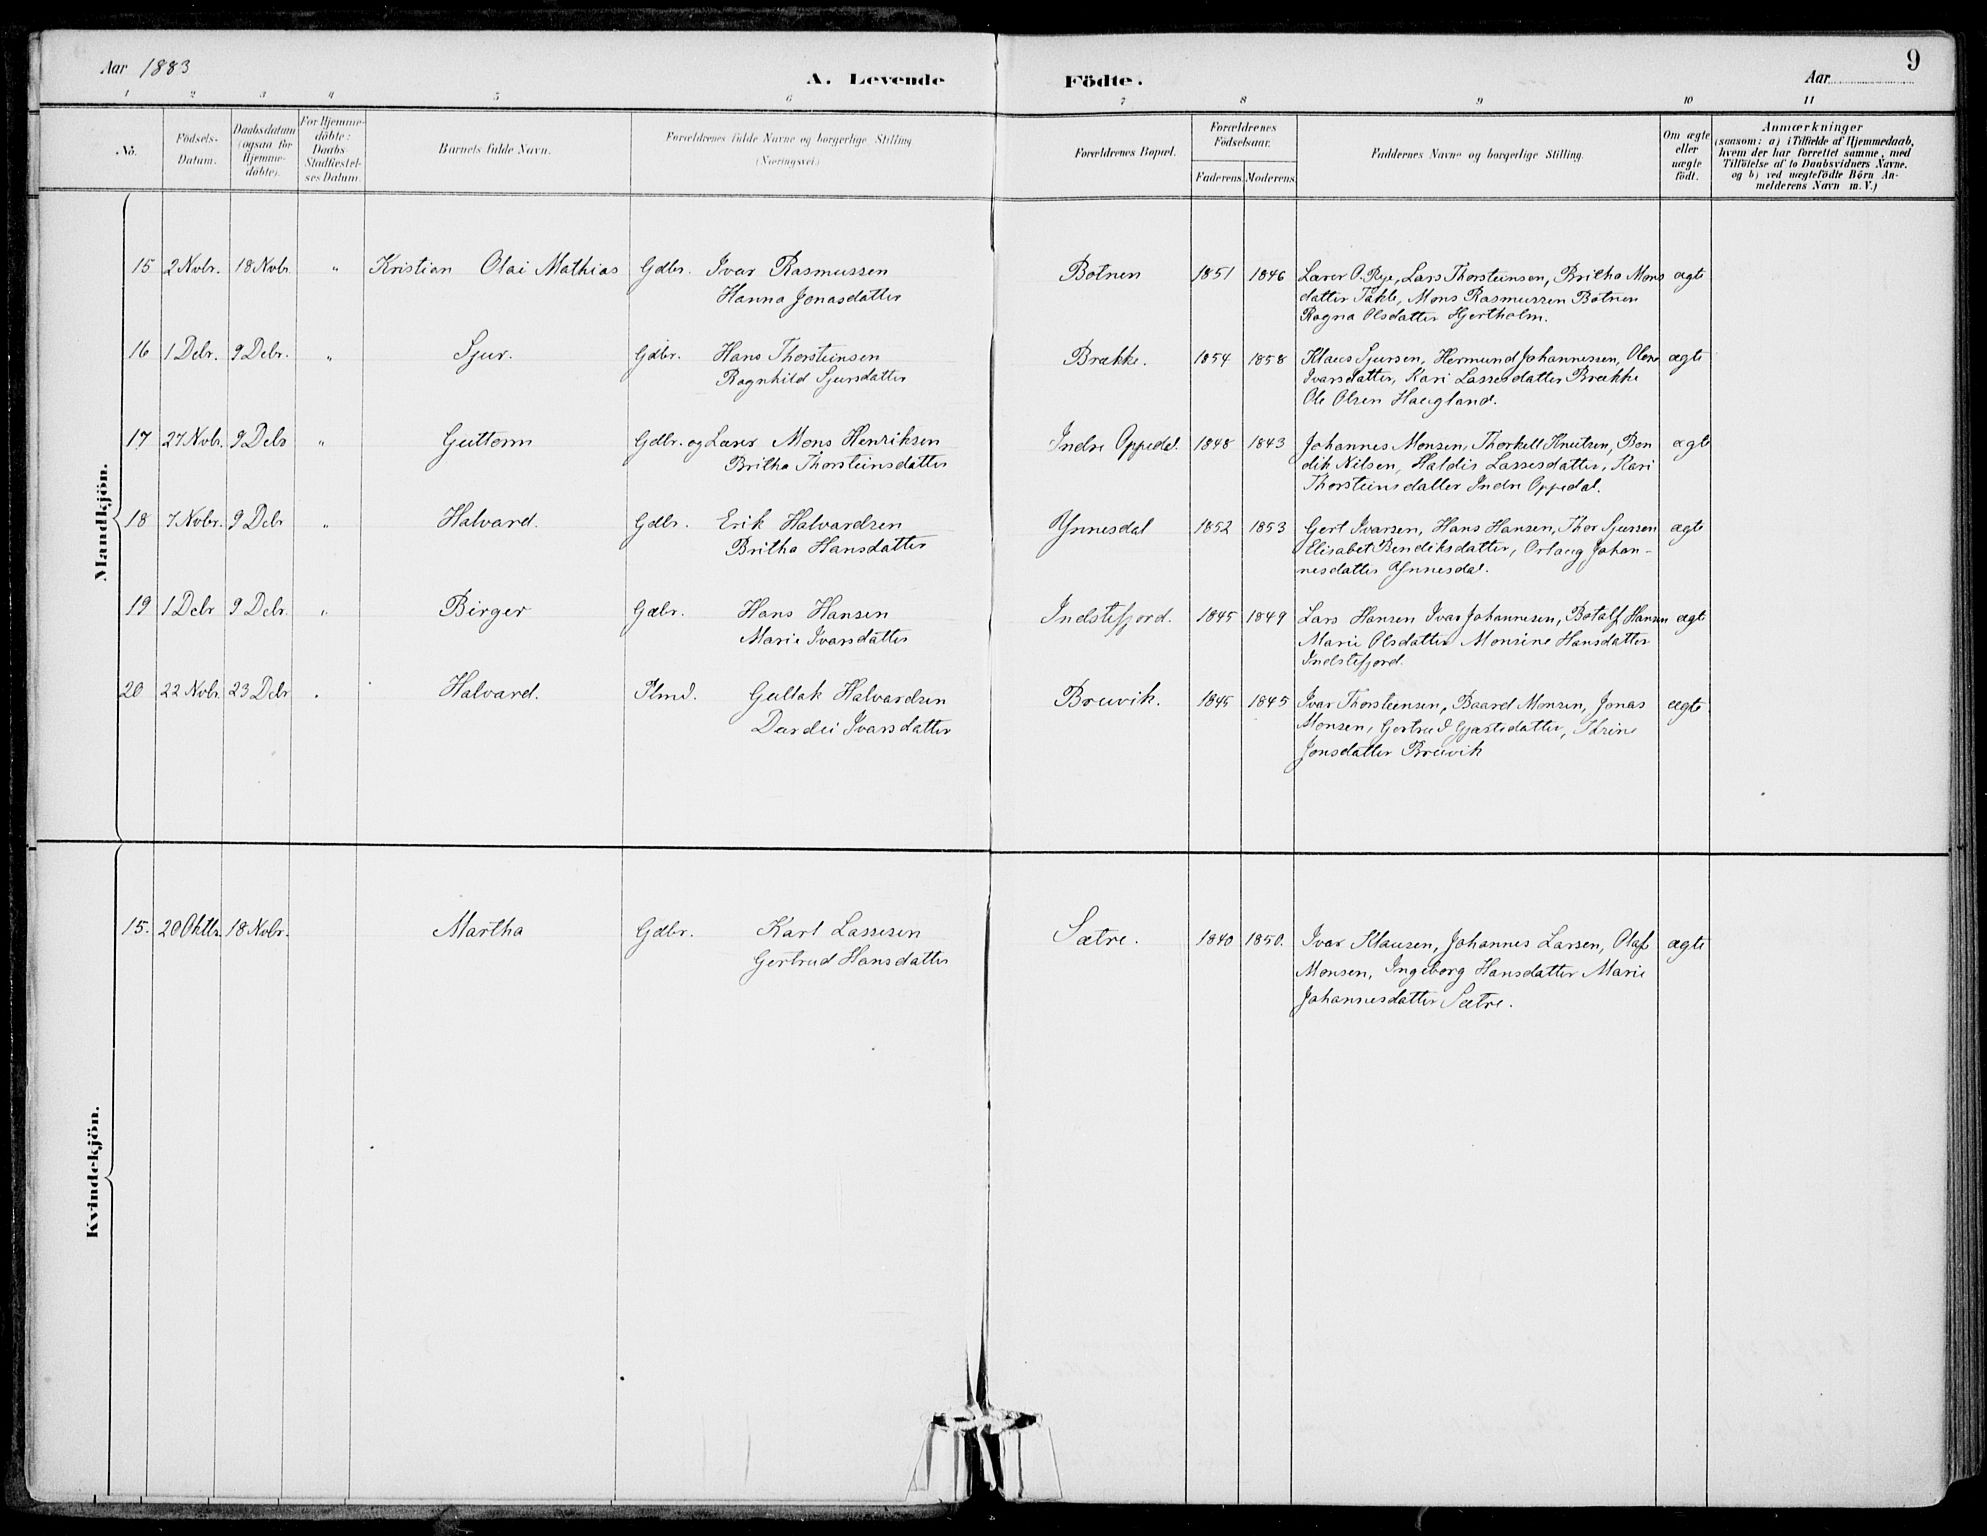 9
Aar 1883
A. Levende
Födte.
Aar
1 2 3 4 5 6 7 8 9 10 11
Nö.
Födsels-
Datum.
Daabsdatum
(ogsaa for
Hjemme-
döbte).
For Hjemme-
döbte:
Daabs-
Stadfæstel-
ses Datum.
Barnets fulde Navn.
Forældrenes fulde Navne og borgerlige Stilling
(Næringsvei)
Forældrenes Bopæl.
Forældrenes
Födselsaar.
Faderens. Moderens.
Faddernes Navne og borgerlige Stilling.
Om ægte
eller
uægte
födt.
Anmærkninger
(saasom: a) i Tilfælde af Hjemmedaab,
hvem der har forrettet samme, med
Tilföielse af to Daabsvidners Navne,
og b) ved uægtefödte Börn An-
melderens Navn m. V.)
Mandkjön.
15 2 Novbr. 18 Novbr. " Kristian Olai Mathias Gdbr. Ivar Rasmussen Botnen 1851 1846 Lærer O. Rye, Lars Thorsteinsen, Britha Mons ægte
Hanna Jonasdatter datter Takle, Mons Rasmussen Botnen
Ragna Olsdatter Hjertholm.
16 1 Debr. 9 Debr. " Sjur. Gdbr. Hans Thorsteinsen Brække. 1854 1858 Klaus Sjursen, Hermund Johannessen, Olene ægte
Ragnhild Sjursdatter Ivarsdatter, Kari Lassesdatter Brække
Ole Olsen Haugland.
17 27 Novbr. 9 Debr " Guttorm Gdbr. og Lærer Mons Henriksen Indre Oppedal. 1848 1843 Johannes Monsen, Thorkell Knutsen, Ben ægte
Britha Thorsteinsdatter dik Nilsen, Haldis Lassesdatter, Kari
Thorsteinsdatter Indre Oppedal.
18 7 Novbr. 9 Debr " Halvard. Gdbr. Erik Halvardsen Ynnesdal 1852 1853 Gert Ivarsen, Hans Hansen, Thor Sjursen ægte
Britha Hansdatter Elisabet Bendiksdatter, Orlaug Johan-
nesdatter Ynnesdal.
19 1 Debr 9 Debr. " Birger Gdbr. Hans Hansen Indstefjord. 1845 1849 Lars Hansen Ivar Johannesen, Botolf Hansen ægte
Marie Ivarsdatter Marie Olsdatter Monsine Hansdatter
Indstefjord.
20 22 Novbr. 23 Debr . Halvard. Plmd. Gullak Halvardsen Breivik. 1845 1845 Ivar Thorsteinsen, Baard Monsen, Jonas ægte
Dardei Ivarsdatter Monsen, Gertrud Gjertsdatter, Thrine
Jonsdatter Breivik
Kvindekjön.
15. 20 Oktbr. 18 Novbr. Martha Gdbr. Karl Lassesen Sætre. 1840 1850. Ivar Klausen, Johannes Larsen, Olaf ægte
Gertrud Hansdatter Monsen, Ingeborg Hansdatter Marie
Johannesdatter Sætre.